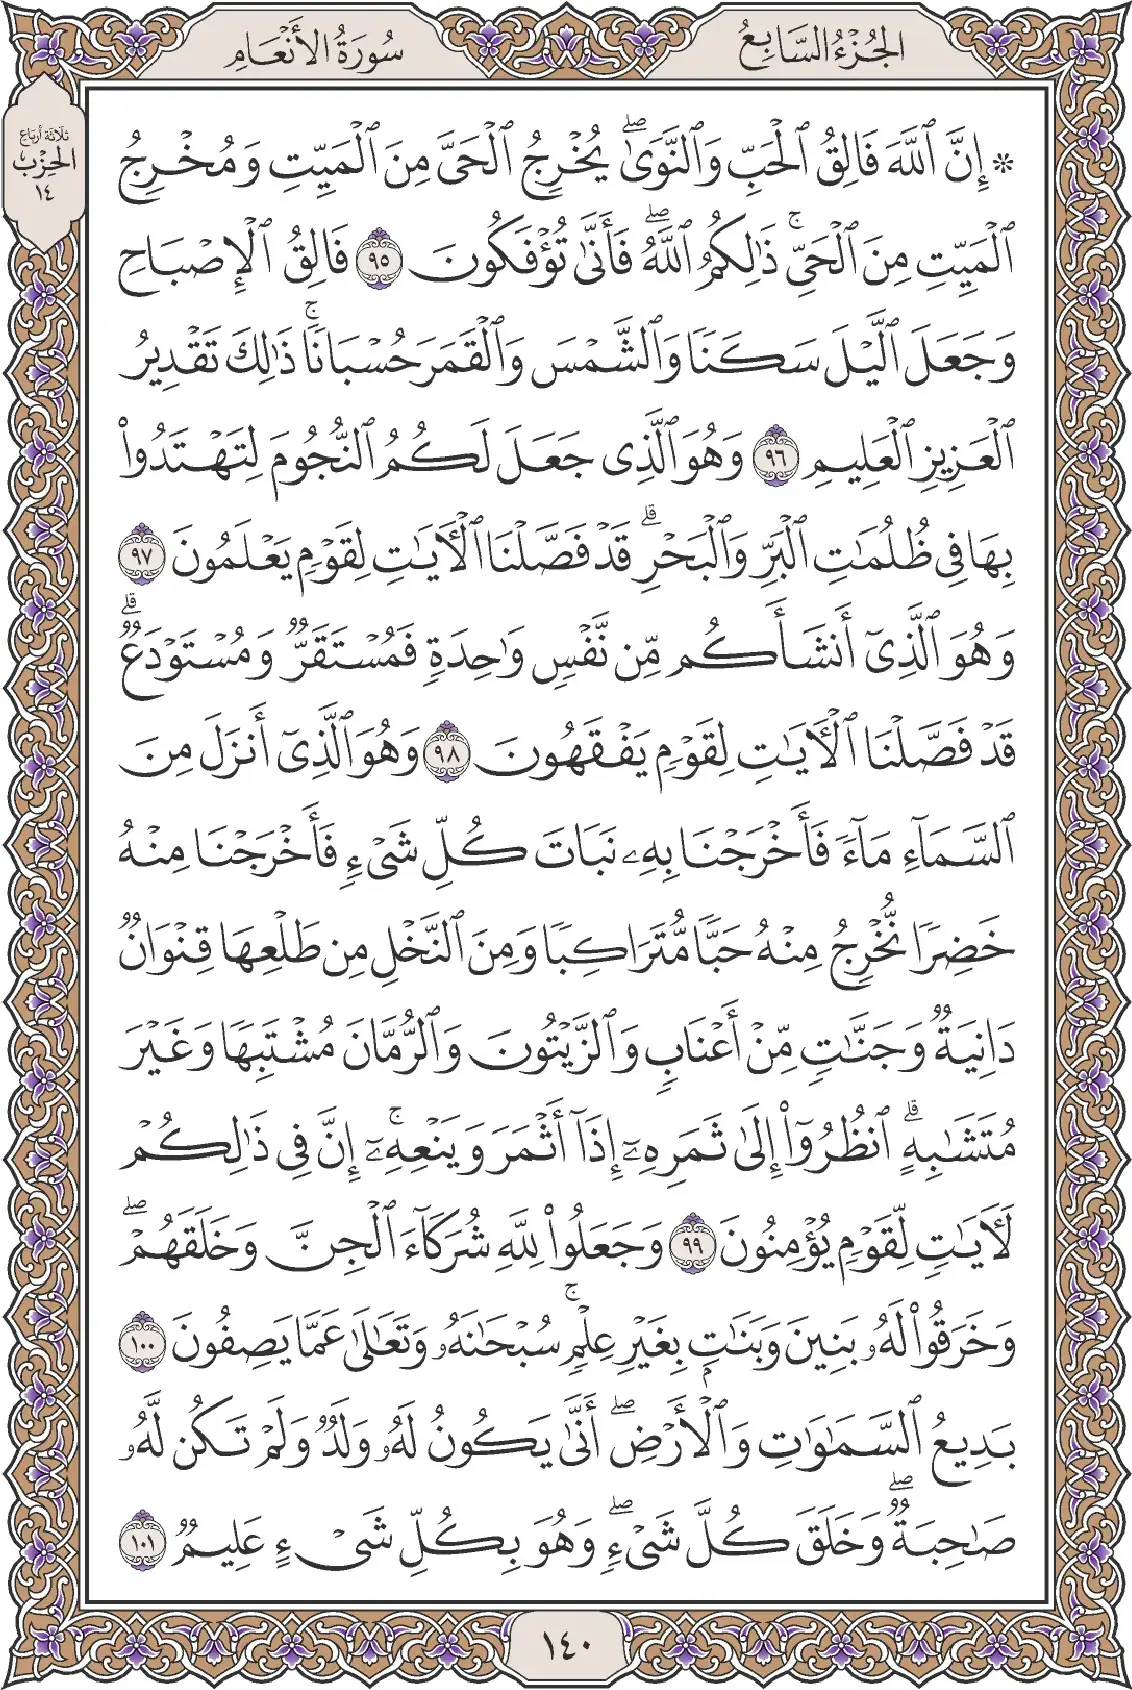 الجُزْءُ السَّابِعُ
سُورَةُ الأَنْعَامِ
ثلاثة أرباع
الحِزْب
١٤
۞ إِنَّ ٱللَّهَ فَالِقُ ٱلْحَبِّ وَٱلنَّوَىٰۖ يُخْرِجُ ٱلْحَىَّ مِنَ ٱلْمَيِّتِ وَمُخْرِجُ
ٱلْمَيِّتِ مِنَ ٱلْحَىِّۚ ذَٰلِكُمُ ٱللَّهُۖ فَأَنَّىٰ تُؤْفَكُونَ ٩٥ فَالِقُ ٱلْإِصْبَاحِ
وَجَعَلَ ٱلَّيْلَ سَكَنًا وَٱلشَّمْسَ وَٱلْقَمَرَ حُسْبَانًاۚ ذَٰلِكَ تَقْدِيرُ
ٱلْعَزِيزِ ٱلْعَلِيمِ ٩٦ وَهُوَ ٱلَّذِى جَعَلَ لَكُمُ ٱلنُّجُومَ لِتَهْتَدُوا۟
بِهَا فِى ظُلُمَٰتِ ٱلْبَرِّ وَٱلْبَحْرِۗ قَدْ فَصَّلْنَا ٱلْءَايَٰتِ لِقَوْمٍ يَعْلَمُونَ ٩٧
وَهُوَ ٱلَّذِىٓ أَنشَأَكُم مِّن نَّفْسٍ وَٰحِدَةٍ فَمُسْتَقَرٌّ وَمُسْتَوْدَعٌۗ
قَدْ فَصَّلْنَا ٱلْءَايَٰتِ لِقَوْمٍ يَفْقَهُونَ ٩٨ وَهُوَ ٱلَّذِىٓ أَنزَلَ مِنَ
ٱلسَّمَآءِ مَآءً فَأَخْرَجْنَا بِهِۦ نَبَاتَ كُلِّ شَىْءٍ فَأَخْرَجْنَا مِنْهُ
خَضِرًا نُّخْرِجُ مِنْهُ حَبًّا مُّتَرَاكِبًا وَمِنَ ٱلنَّخْلِ مِن طَلْعِهَا قِنْوَانٌ
دَانِيَةٌ وَجَنَّٰتٍ مِّنْ أَعْنَابٍ وَٱلزَّيْتُونَ وَٱلرُّمَّانَ مُشْتَبِهًا وَغَيْرَ
مُتَشَٰبِهٍۗ ٱنظُرُوٓا۟ إِلَىٰ ثَمَرِهِۦٓ إِذَآ أَثْمَرَ وَيَنْعِهِۦٓۚ إِنَّ فِى ذَٰلِكُمْ
لَءَايَٰتٍ لِّقَوْمٍ يُؤْمِنُونَ ٩٩ وَجَعَلُوا۟ لِلَّهِ شُرَكَآءَ ٱلْجِنَّ وَخَلَقَهُمْۖ
وَخَرَقُوا۟ لَهُۥ بَنِينَ وَبَنَٰتٍۭ بِغَيْرِ عِلْمٍۚ سُبْحَٰنَهُۥ وَتَعَٰلَىٰ عَمَّا يَصِفُونَ ١٠٠
بَدِيعُ ٱلسَّمَٰوَٰتِ وَٱلْأَرْضِۖ أَنَّىٰ يَكُونُ لَهُۥ وَلَدٌ وَلَمْ تَكُن لَّهُۥ
صَٰحِبَةٌۖ وَخَلَقَ كُلَّ شَىْءٍۖ وَهُوَ بِكُلِّ شَىْءٍ عَلِيمٌ ١٠١
١٤٠